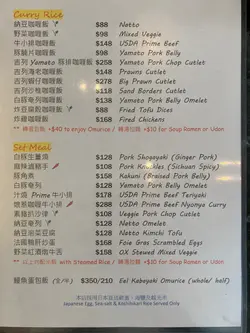 Curry Rice
納豆咖喱飯 $88 Natto
野菜咖喱飯 $98 Mixed Veggie
牛小排咖喱飯 $148 USDA Prime Beef
豚腩片咖喱飯 $118 Yamato Pork Belly
吉列 Yamato 豚排咖喱飯 $258 Yamato Pork Chop Cutlet
吉列海老咖喱飯 $148 Prawns Cutlet
吉列 咖喱飯 $278 Big Prawn Cutlet
吉列 咖喱飯 $118 Sand Borders Cutlet
白豚 咖喱飯 $138 Yamato Pork Belly Omelet
炸豆腐 咖喱飯 $98 Fried Tofu Dices
炸雞咖喱飯 $168 Fired Chickens
+$40 to enjoy Omurice / +$10 for Soup Ramen or Udon
Set Meal
白豚生薑燒 $128 Pork Shogayaki (Ginger Pork)
$118 Pork Knuckles (Sichuan Spicy)
豚角煮 $148 Kakuni (Braised Pork Belly)
白豚 $128 Yamato Pork Belly Omelet
Prime 牛小排 $168 USDA Prime Beef Teriyaki
牛小排 $168 USDA Prime Beef Nyonya Curry
$138 Veggie Pork Chop Cutlet
納豆 $108 Natto Omelet
納豆 $108 Natto Cold Tofu
法國鵝肝炒蛋 $168 Foie Gras Scrambled Eggs
野菜紅酒 牛舌 $158 OX Stewed Mixed Veggie
with Steamed Rice / +$10 for Soup Ramen or Udon
鰻魚蛋包飯 $150/210 Eel Kabayaki Omurice (whole/ half)
Japanese Egg, Sea salt & Koshihikari Rice Served Only